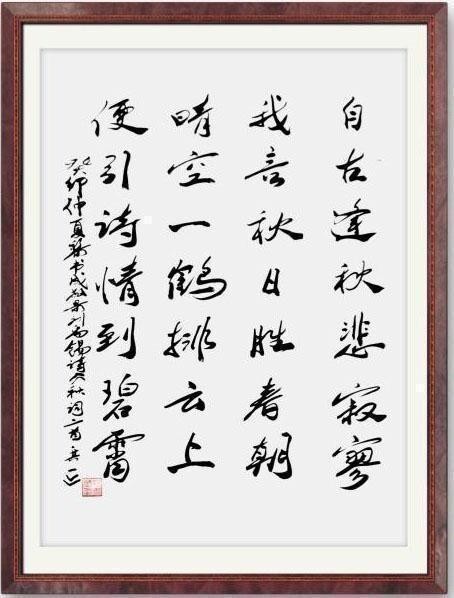 自古逢秋悲寂寥
我言秋日胜春朝
晴空一鹤排云上
便引诗情到碧霄
癸卯仲夏
刘禹锡诗秋词一首